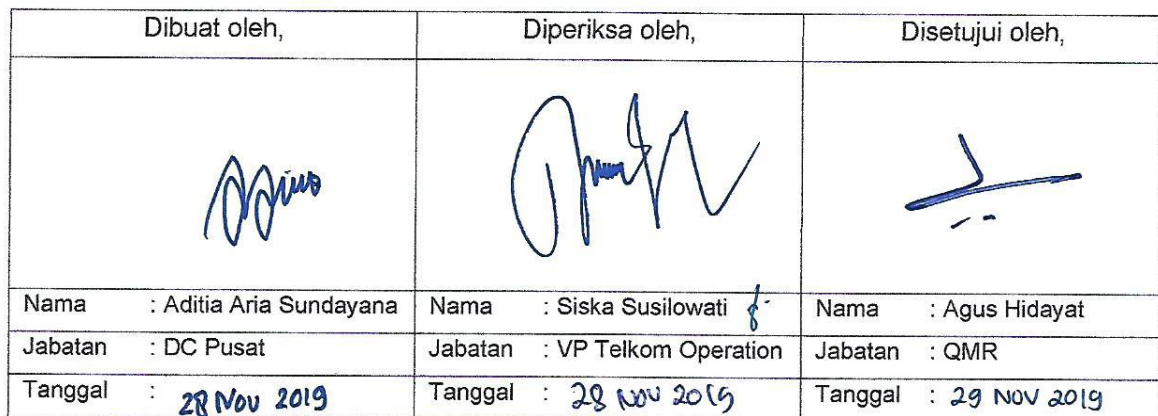 Dibuat oleh, Diperiksa oleh, Disetujui oleh,
Nama : Aditia Aria Sundayana Nama : Siska Susilowati Nama : Agus Hidayat
Jabatan : DC Pusat Jabatan : VP Telkom Operation Jabatan : QMR
Tanggal : 28 Nov 2019 Tanggal : 28 Nov 2019 Tanggal : 29 NOV 2019